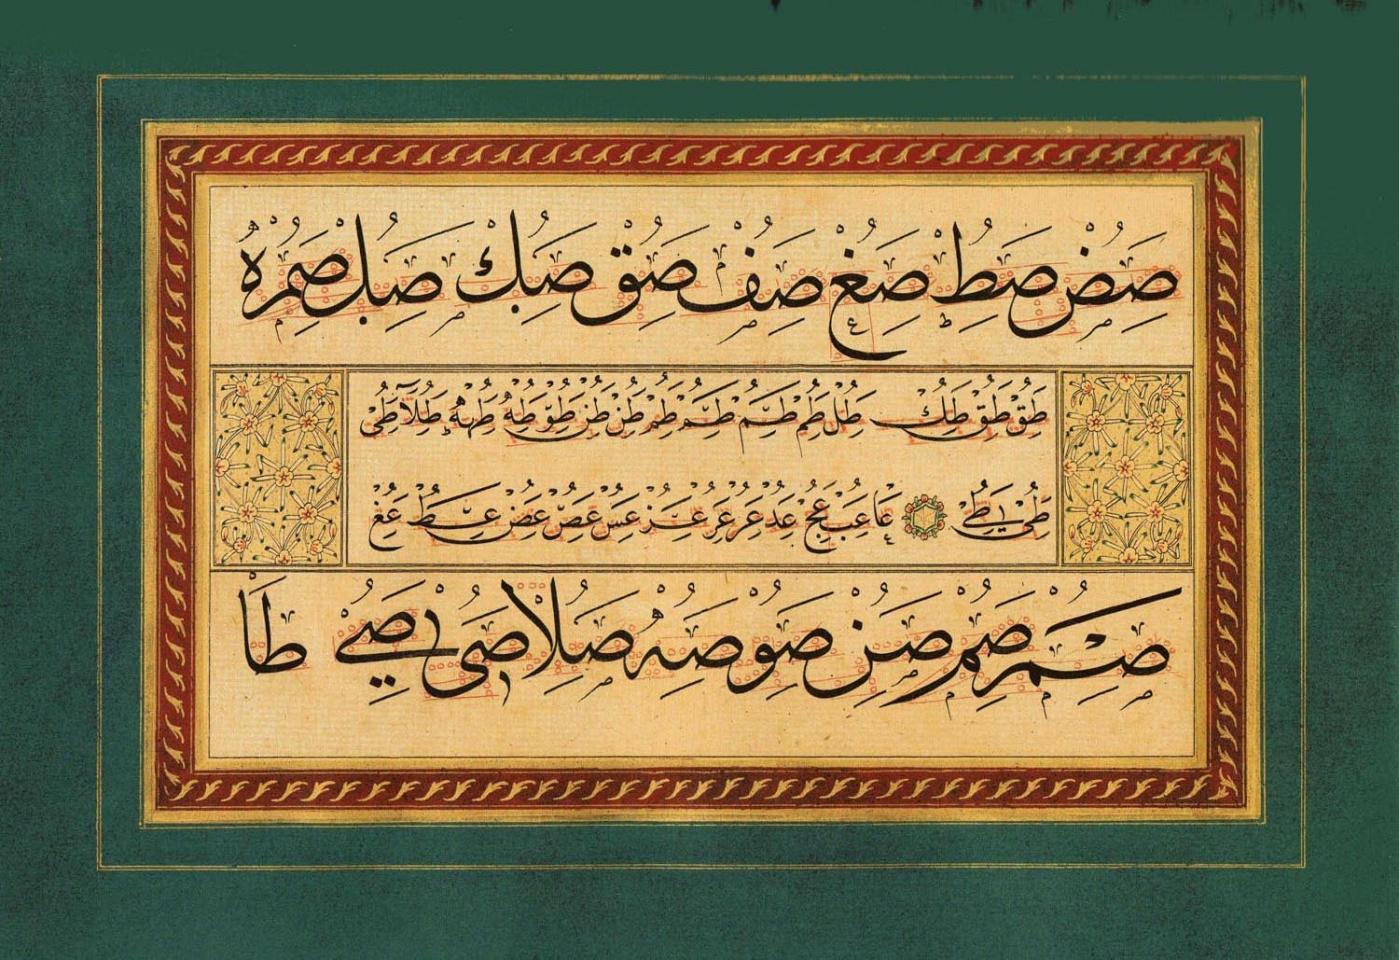 صض صط صع صف صق صك صل صم
طق طق طك طل طم طم طم طم طن طن طو طه طه طلا طى
طى طى عا عب عج عد عر عر عر عس عص عض عط عع
صم صم صن صو صه صلا صى صى طا